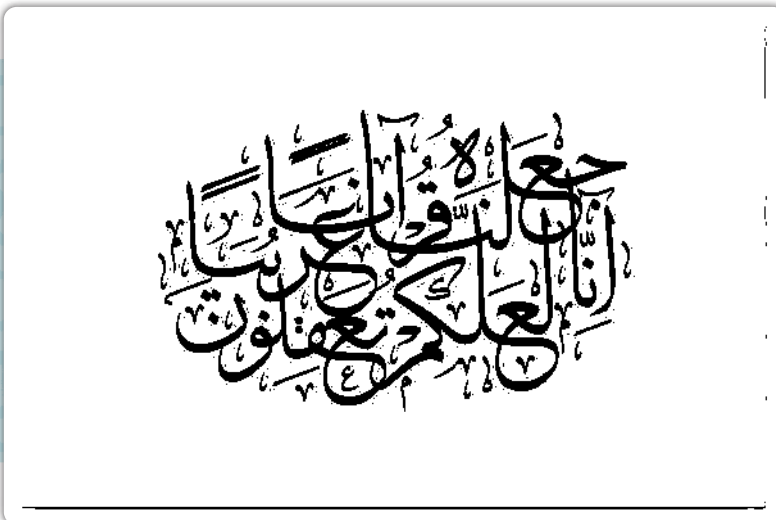 إنّا جعلنٰه قرآنًا عربيًّا لعلّكم تعقلون